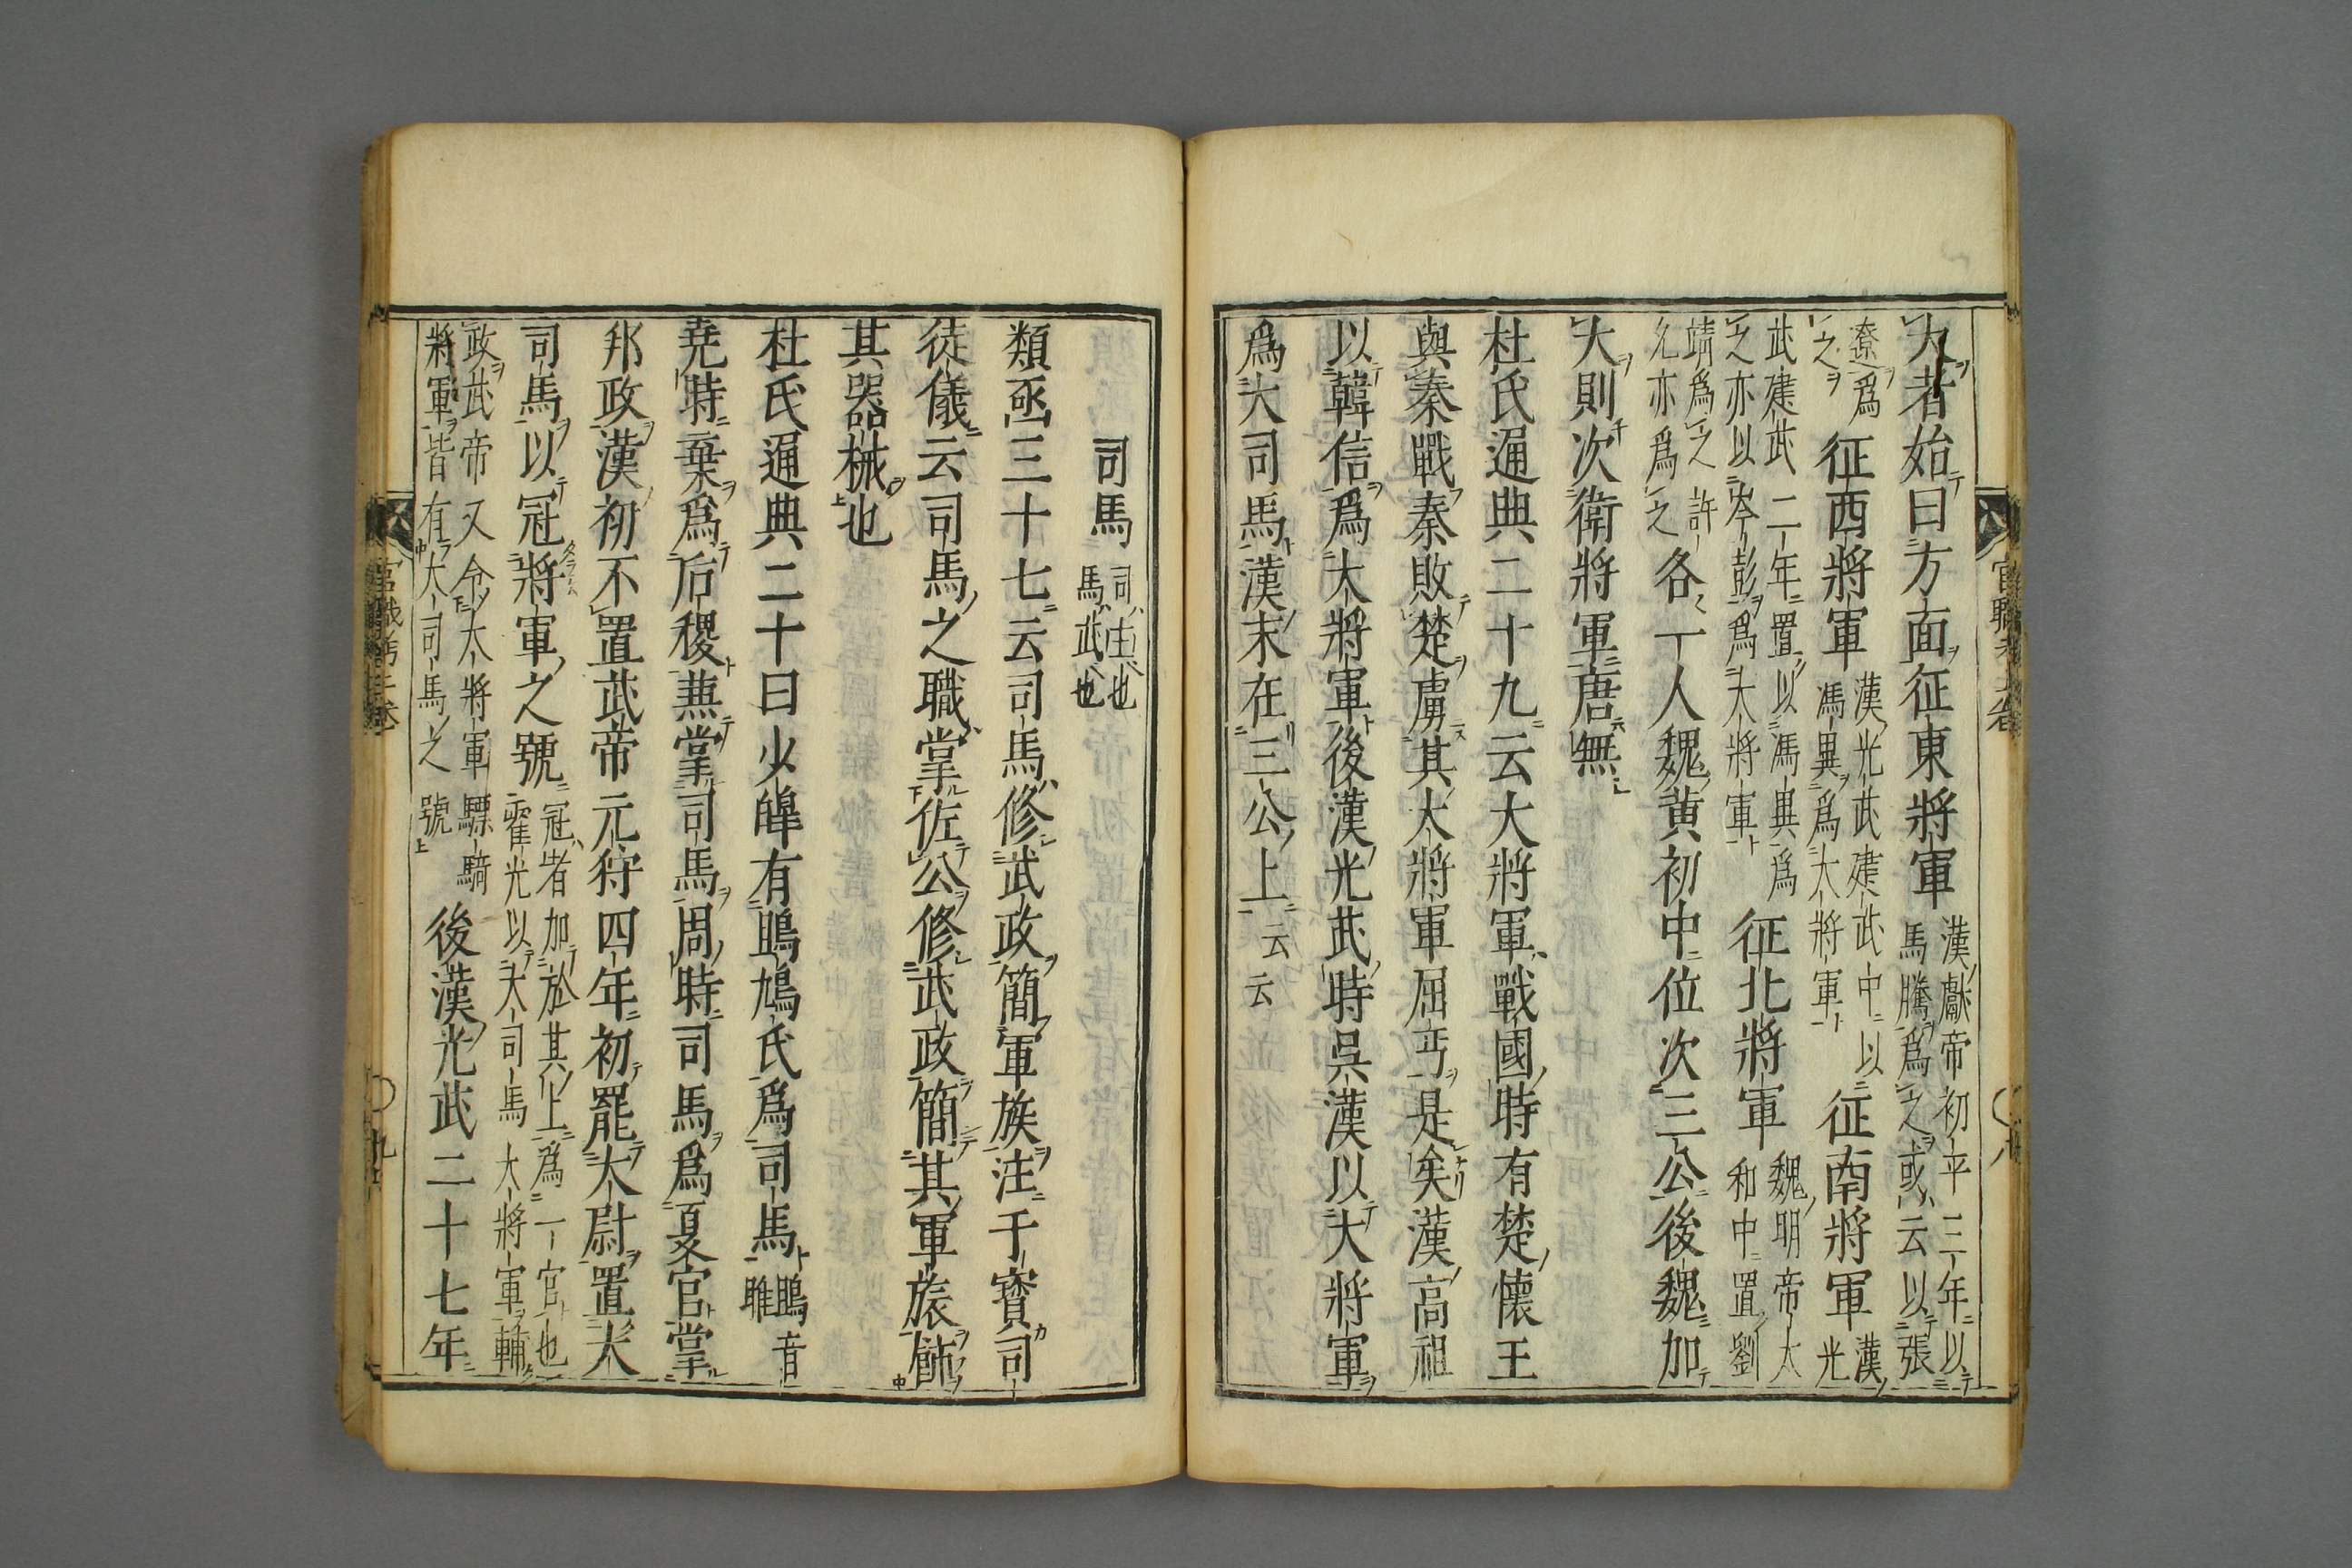 大者始曰方面征東將軍漢獻帝初平三年以馬騰爲之或云以張
遼爲之征西將軍漢光武建武中以馮異爲大將軍征南將軍漢光
武建武二年置以馮異爲之亦以岑彭爲大將軍征北將軍魏明帝太和中置劉
靖爲之許允亦爲之各一人魏黃初中位次三公後魏加
大則次衛將軍唐無
杜氏通典二十九云大將軍戰國時有楚懷王
與秦戰秦敗楚虜其大將軍屈丐是矣漢高祖
以韓信爲大將軍後漢光武時吳漢以大將軍
爲大司馬漢末在三公上云云
司馬司主也馬武也
類函三十七云司馬修武政簡軍族注干寳司
徒儀云司馬之職掌佐公修武政簡其軍旅飾
其器械也
杜氏通典二十曰少皞有鴡鳩氏爲司馬鴡音雎
堯時棄爲后稷兼掌司馬周時司馬爲夏官掌
邦政漢初不置武帝元狩四年初罷太尉置大
司馬以冠將軍之號冠者加於其上爲一官也霍光以大司馬大將軍輔
政武帝又令大將軍驃騎將軍皆有大司馬之號後漢光武二十七年